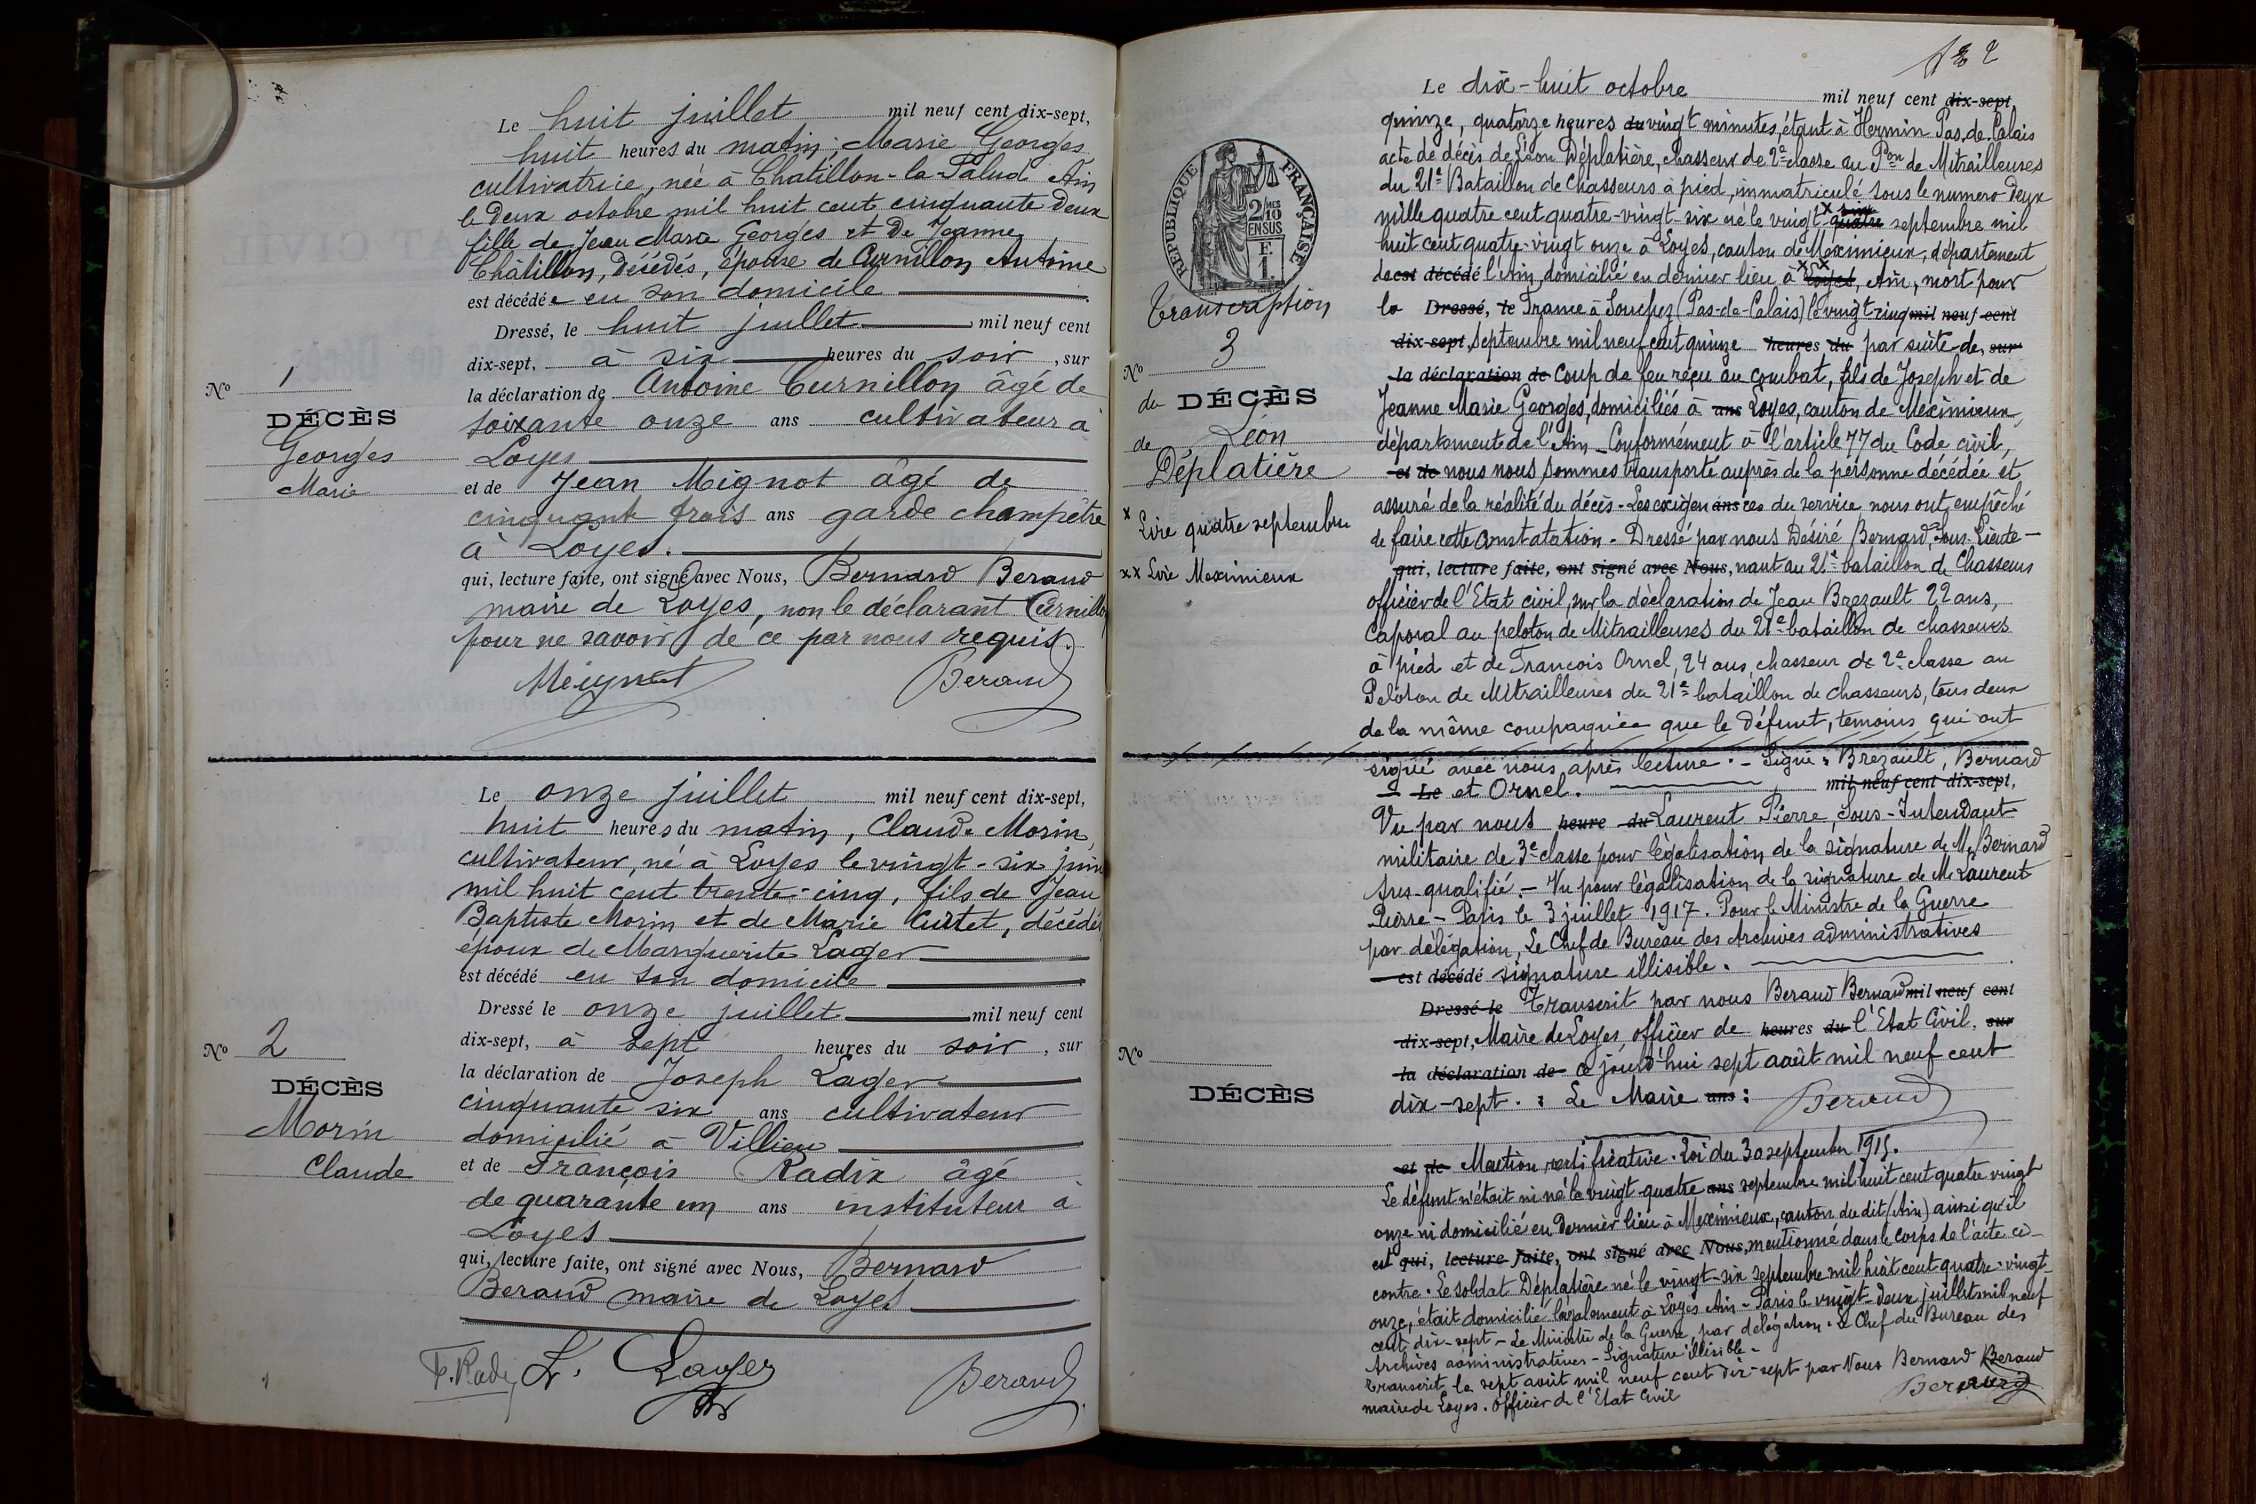 Le huit juillet mil neuf cent dix-sept,
huit heures du matin, Marie Georges
cultivatrice, née à Chatillon-la-Palud Ain
le deux octobre mil huit cent cinquante deux
fille de Jean Marie Georges et de Jeanne
Châtillon, décédés, épouse de Curnillon Antoine
est décédée en son domicile
Dressé, le huit juillet mil neuf cent
dix-sept, à six heures du soir, sur
la déclaration de Antoine Curnillon âgé de
soixante onze ans cultivateur à
Loyes
et de Jean Mignot âgé de
cinquante trois ans garde champêtre
à Loyes.
qui, lecture faite, ont signé avec Nous, Bernard Beraud
maire de Loyes, non le déclarant Curnillon
pour ne savoir de ce par nous requis.
Beraud
No 1
DÉCÈS
Georges
Marie
Le onze juillet mil neuf cent dix-sept,
huit heures du matin, Claude Morin,
cultivateur, né à Loyes le vingt-six juin
mil huit cent trente-cinq, fils de Jean
Baptiste Morin et de Marie Curtet, décédés
époux de Marguerite Lager
est décédé en son domicile
Dressé le onze juillet mil neuf cent
dix-sept, à sept heures du soir, sur
la déclaration de Joseph Lager
cinquante six ans cultivateur
domicilié à Villieu
et de François Radix âgé
de quarante un ans instituteur à
Loyes
qui, lecture faite, ont signé avec Nous, Bernard
Beraud maire de Loyes
F. Radix Lager Beraud
No 2
DÉCÈS
Morin
Claude
2
RÉPUBLIQUE FRANÇAISE
2/10 EN SUS
F. 1
Transcription
No 3
du DÉCÈS
de Léon
Déplatière
x Lire quatre septembre
xx Lire Meximieux
Le dix-huit octobre mil neuf cent dix-sept
quinze, quatorze heures du vingt minutes, étant à Hermin Pas-de-Calais
acte de décès de Léon Déplatière, chasseur de 2e classe au Pon de Mitrailleuses
du 21e Bataillon de Chasseurs à pied, immatriculé sous le numero deux
mille quatre cent quatre-vingt-six né le vingt-x quatre septembre mil
huit cent quatre-vingt onze à Loyes, canton de Meximieux, département
de est décédé l'Ain, domicilié en dernier lieu à xx Loyes, Ain, mort pour
la Dressé, le France à Souchez (Pas-de-Calais) le vingt-cinq mil neuf cent
dix-sept, septembre mil neuf cent quinze heures du par suite de, sur
la déclaration de coup de feu reçu au combat, fils de Joseph et de
Jeanne Marie Georges, domiciliés à ans Loyes, canton de Meximieux,
département de l'Ain. Conformément à l'article 77 du Code civil,
et de nous nous sommes transporté auprès de la personne décédée et
assuré de la réalité du décès. Les exigen ans ces du service nous ont empêché
de faire cette constatation. Dressé par nous Désiré Bernard, Sous-Lieute-
qui, lecture faite, ont signé avec Nous, nant au 21e bataillon de Chasseurs
officier de l'Etat civil, sur la déclaration de Jean Brezault 22 ans,
Caporal au peloton de Mitrailleuses du 21e bataillon de chasseurs
à pied et de François Ornel, 24 ans, chasseur de 2e classe au
Peloton de Mitrailleuses du 21e bataillon de chasseurs, tous deux
de la même compagnie que le défunt, temoins qui ont
signé avec nous après lecture. - Signé: Brezault, Bernard
Le et Ornel. mil neuf cent dix-sept,
Vu par nous heure du Laurent Pierre, Sous-Intendant
militaire de 3e classe pour légalisation de la signature de M. Bernard
sus-qualifié. - Vu pour légalisation de la signature de M. Laurent
Pierre - Paris le 3 juillet 1917. Pour le Ministre de la Guerre
par délégation, Le Chef de Bureau des Archives administratives
est décédé signature illisible.
Dressé le Transcrit par nous Beraud Bernard mil neuf cent
dix-sept, Maire de Loyes, officier de heures du l'Etat Civil, sur
la déclaration de ce jourd'hui sept août mil neuf cent
dix-sept. : Le Maire ans : Beraud
No
DÉCÈS
et de Mention rectificative. Loi du 30 septembre 1915.
Le défunt n'était ni né le vingt-quatre ans septembre mil huit cent quatre vingt
onze ni domicilié en dernier lieu à Meximieux, canton du dit (Ain) ainsi qu'il
est qui, lecture faite, ont signé avec Nous, mentionné dans le corps de l'acte ci-
contre. Le soldat Déplatière né le vingt-six septembre mil huit cent quatre-vingt
onze, était domicilié légalement à Loyes Ain - Paris le vingt-deux juillet mil neuf
cent dix-sept - Le Ministre de la Guerre, par délégation. Le Chef du Bureau des
Archives administratives - Signature illisible -
Transcrit le sept août mil neuf cent dix-sept par Nous Bernard Beraud
maire de Loyes. Officier de l'Etat Civil Beraud